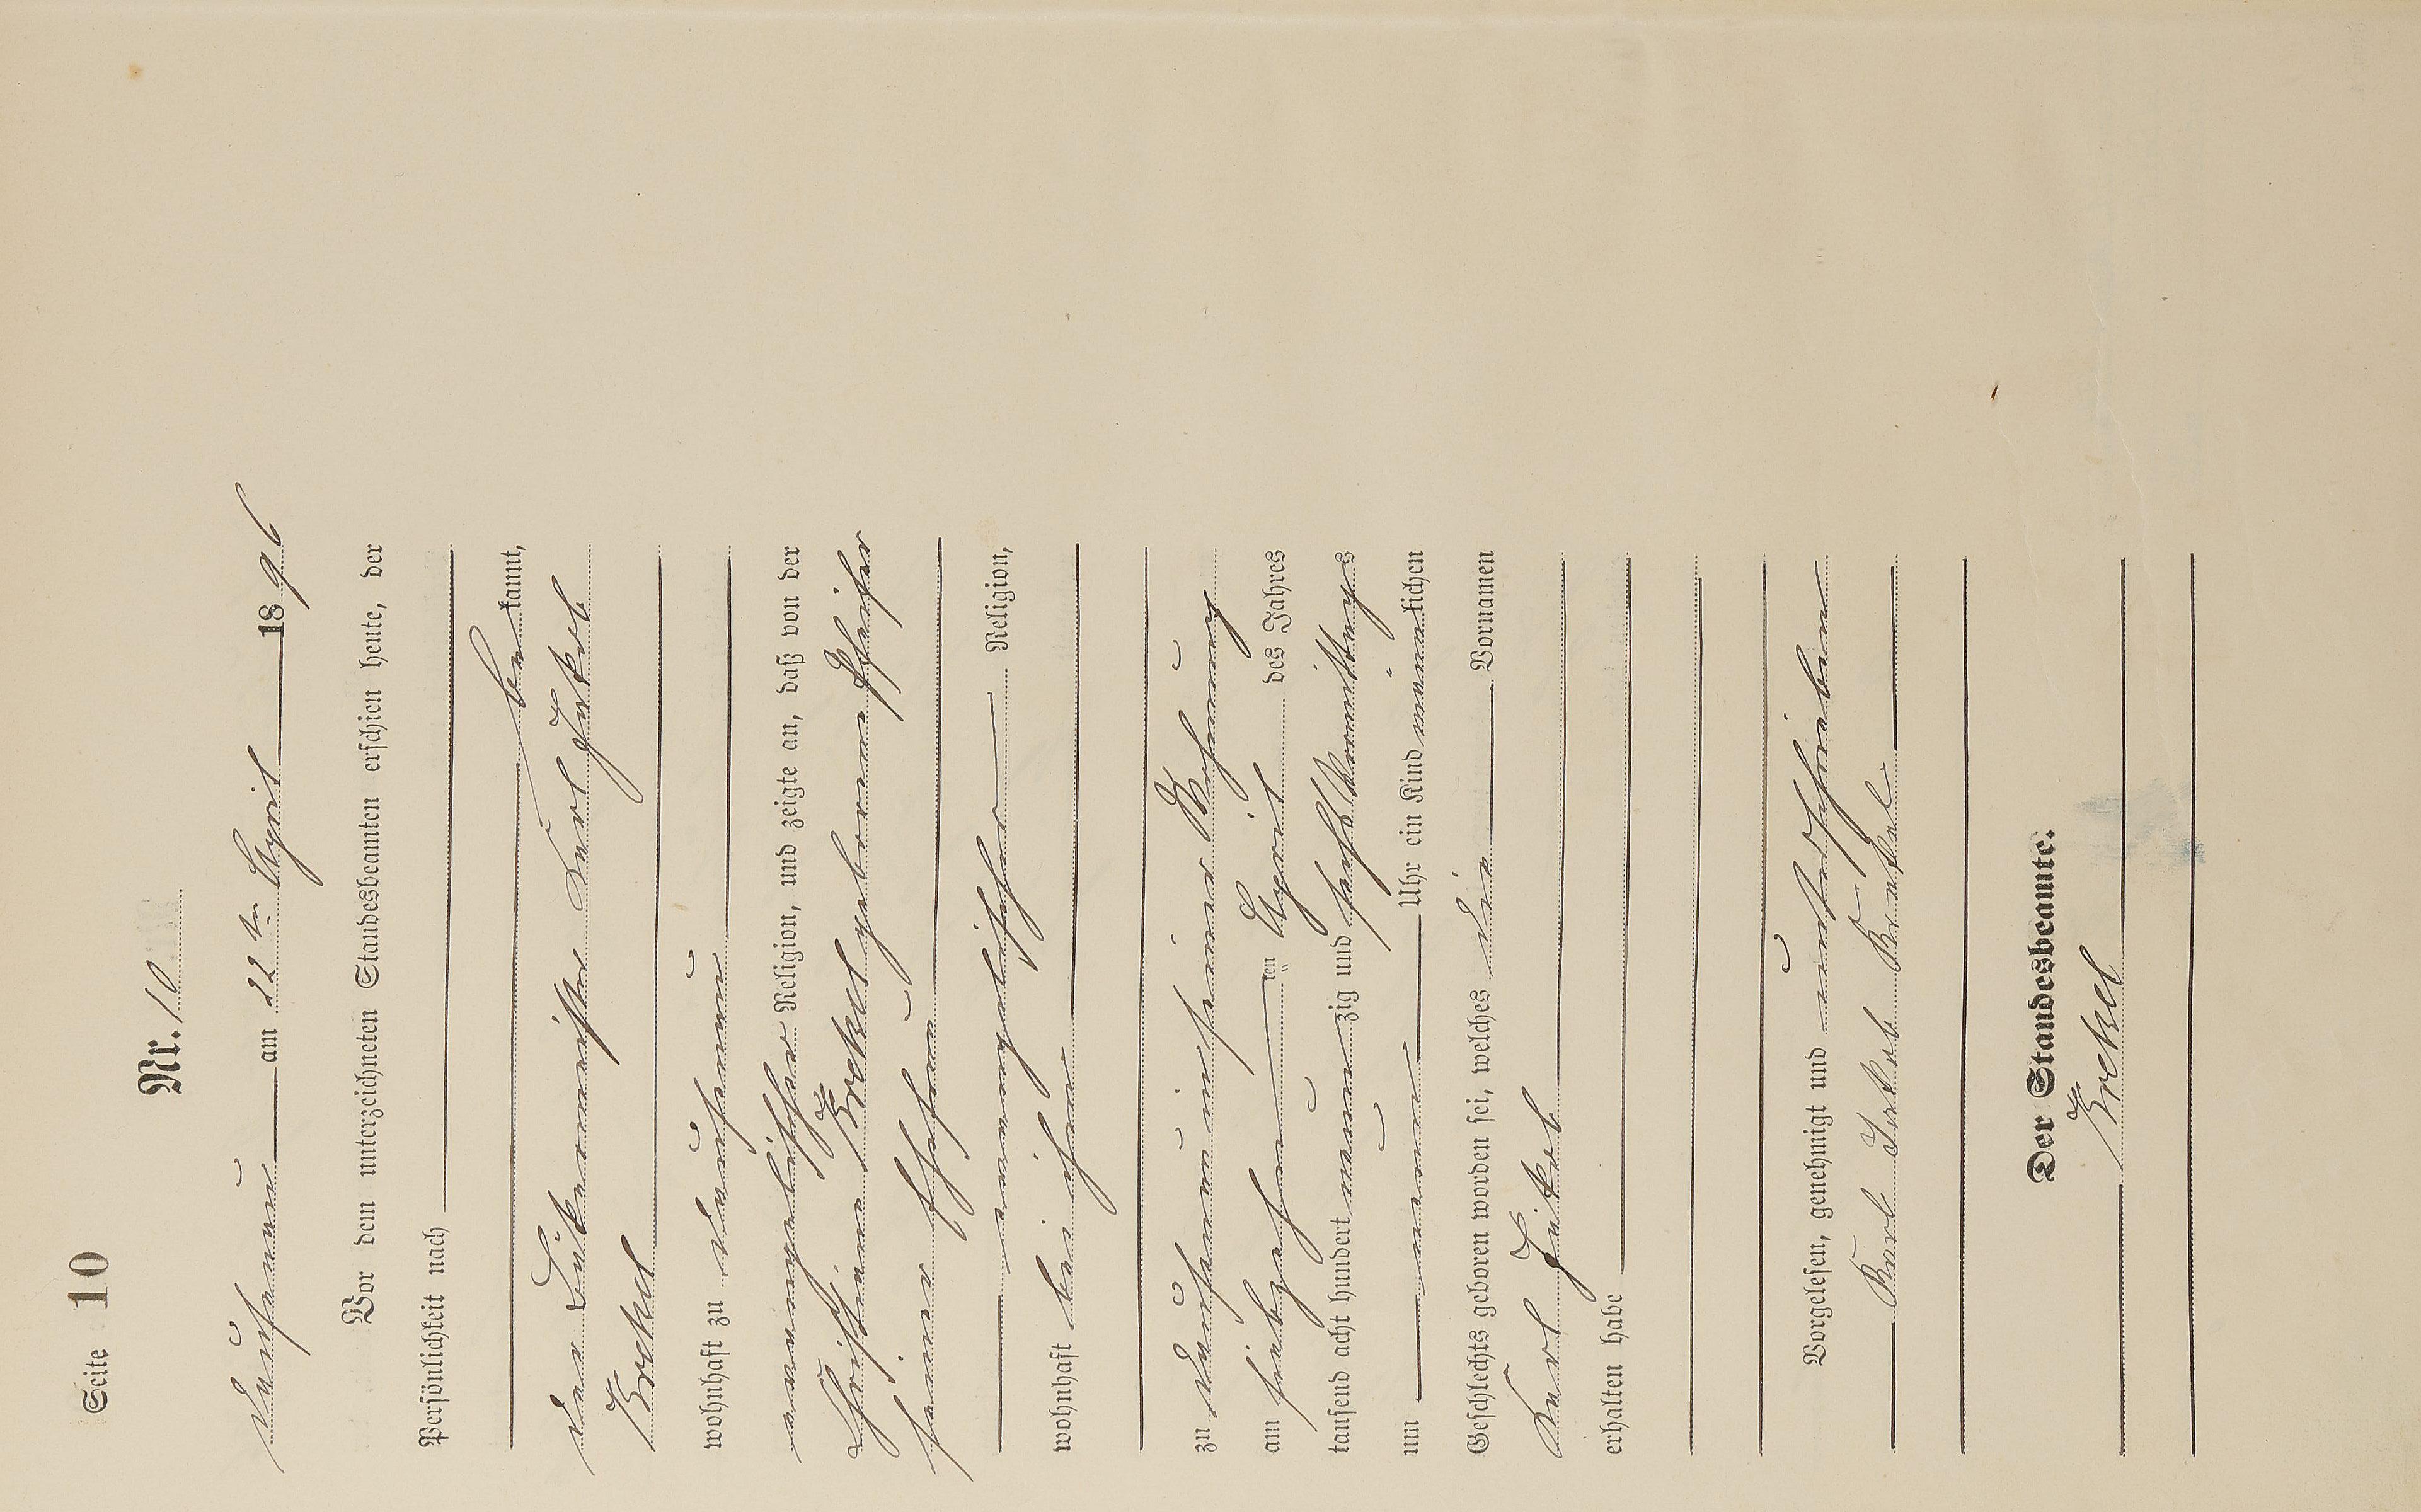 Seite 10
Nr. 10
Dausenau am 22ten April 1896
Vor dem unterzeichneten Standesbeamten erschien heute, der
Persönlichkeit nach
bekannt,
der Karl Jakob
Krekel
wohnhaft zu Dausenau
evangelischer Religion, und zeigte an, daß von der
Christiane Krekel geborene Pfeifer
seiner Ehefrau
evangelischer Religion,
wohnhaft bei ihm
zu Dausenau in seiner Wohnung
am siebzehnten April des Jahres
tausend acht hundert neunzig und sechs Vormittags
um neun Uhr ein Kind männlichen
Geschlechts geboren worden sei, welches die Vornamen
Karl Jakob
erhalten habe
Vorgelesen, genehmigt und unterschrieben
Karl Jakob Krekel
Der Standesbeamte.
Krekel